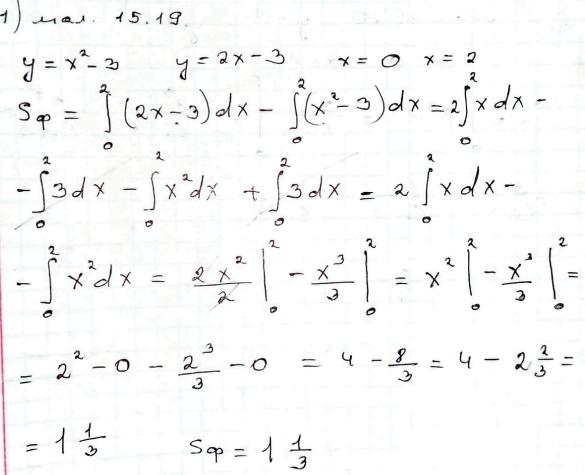 1) мал. 15.19.
y = x² - 3    y = 2x - 3    x = 0  x = 2
Sф = ∫₀² (2x - 3) dx - ∫₀² (x² - 3) dx = 2∫₀² x dx -
- ∫₀² 3 dx - ∫₀² x² dx + ∫₀² 3 dx = 2 ∫₀² x dx -
- ∫₀² x² dx = 2x²/2 |₀² - x³/3 |₀² = x² |₀² - x³/3 |₀² =
= 2² - 0 - 2³/3 - 0 = 4 - 8/3 = 4 - 2 2/3 =
= 1 1/3    Sф = 1 1/3